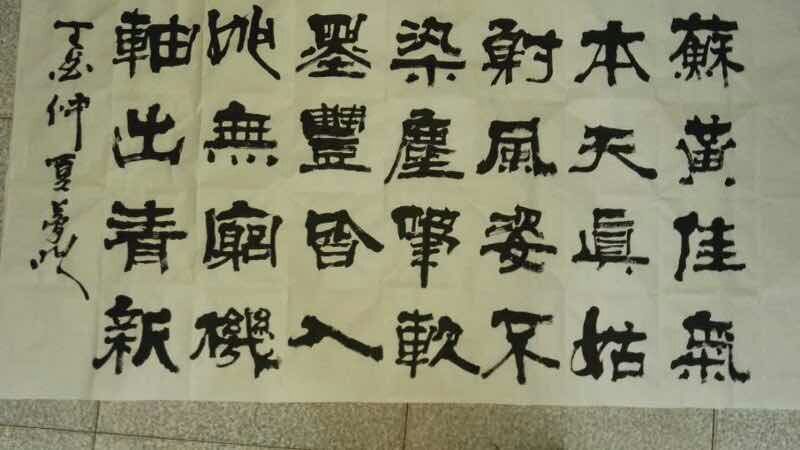 蘇黃佳氣
本天眞姑
射風姿不
染塵筆軟
墨豐皆入
妙無窮機
軸出青新
丁酉仲夏